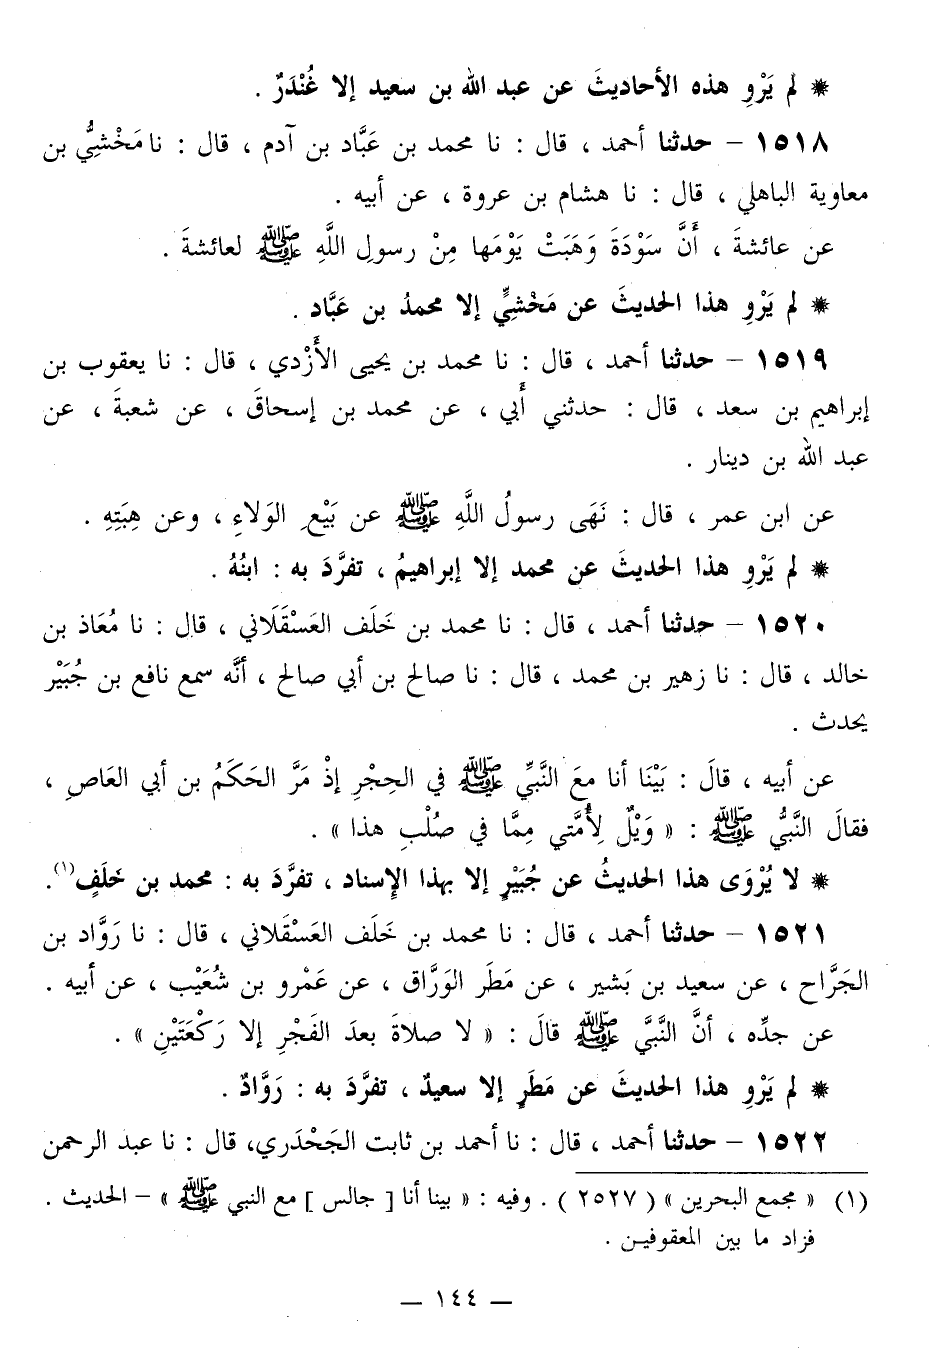 * لم يَرْوِ هذه الأحاديثَ عن عبد الله بن سعيد إلا غُنْدَرٌ .
١٥١٨ – حدثنا أحمد ، قال : نا محمد بن عَبَّاد بن آدم ، قال : نا مَخْشِيُّ بن
معاوية الباهلي ، قال : نا هشام بن عروة ، عن أبيه .
عن عائشةَ ، أَنَّ سَوْدَةَ وَهَبَتْ يَوْمَها مِنْ رسولِ اللَّهِ ﷺ لعائشةَ .
* لم يَرْوِ هذا الحديثَ عن مَخْشيٍّ إلا محمدُ بن عَبَّاد .
١٥١٩ – حدثنا أحمد ، قال : نا محمد بن يحيى الأَزْدي ، قال : نا يعقوب بن
إبراهيم بن سعد ، قال : حدثني أَبي ، عن محمد بن إسحاقَ ، عن شعبةَ ، عن
عبد الله بن دينار .
عن ابن عمر ، قال : نَهَى رسولُ اللَّهِ ﷺ عن بَيْعِ الوَلاءِ ، وعن هِبَتِهِ .
* لم يَرْوِ هذا الحديثَ عن محمد إلا إبراهيمُ ، تفرَّدَ به : ابنُهُ .
١٥٢٠ – حدثنا أحمد ، قال : نا محمد بن خَلَف العَسْقَلَاني ، قال : نا مُعَاذ بن
خالد ، قال : نا زهير بن محمد ، قال : نا صالح بن أبي صالح ، أنَّه سمع نافع بن جُبَيْر
يحدث .
عن أبيه ، قالَ : بَيْنَا أنا معَ النَّبيِّ ﷺ في الحِجْرِ إذْ مَرَّ الحَكَمُ بن أبي العَاصِ ،
فقالَ النَّبيُّ ﷺ : « وَيْلٌ لِأُمَّتي مِمَّا في صُلْبِ هذا » .
* لا يُرْوَى هذا الحديثُ عن جُبَيْرٍ إلا بهذا الإِسناد ، تفرَّدَ به : محمد بن خَلَفٍ(١).
١٥٢١ – حدثنا أحمد ، قال : نا محمد بن خَلَف العَسْقَلاني ، قال : نا رَوَّاد بن
الجَرَّاح ، عن سعيد بن بَشير ، عن مَطَر الوَرَّاق ، عن عَمْرو بن شُعَيْب ، عن أبيه .
عن جدِّه ، أنَّ النَّبيَّ ﷺ قالَ : « لا صلاةَ بعدَ الفَجْرِ إلا رَكْعَتَيْنِ » .
* لم يَرْوِ هذا الحديثَ عن مَطَرٍ إلا سعيدٌ ، تفرَّدَ به : رَوَّادٌ .
١٥٢٢ – حدثنا أحمد ، قال : نا أحمد بن ثابت الجَحْدَري، قال : نا عبد الرحمن
(١) « مجمع البحرين » ( ٢٥٢٧ ) . وفيه : « بينا أنا [ جالس ] مع النبي ﷺ » – الحديث .
فزاد ما بين المعقوفين .
– ١٤٤ –